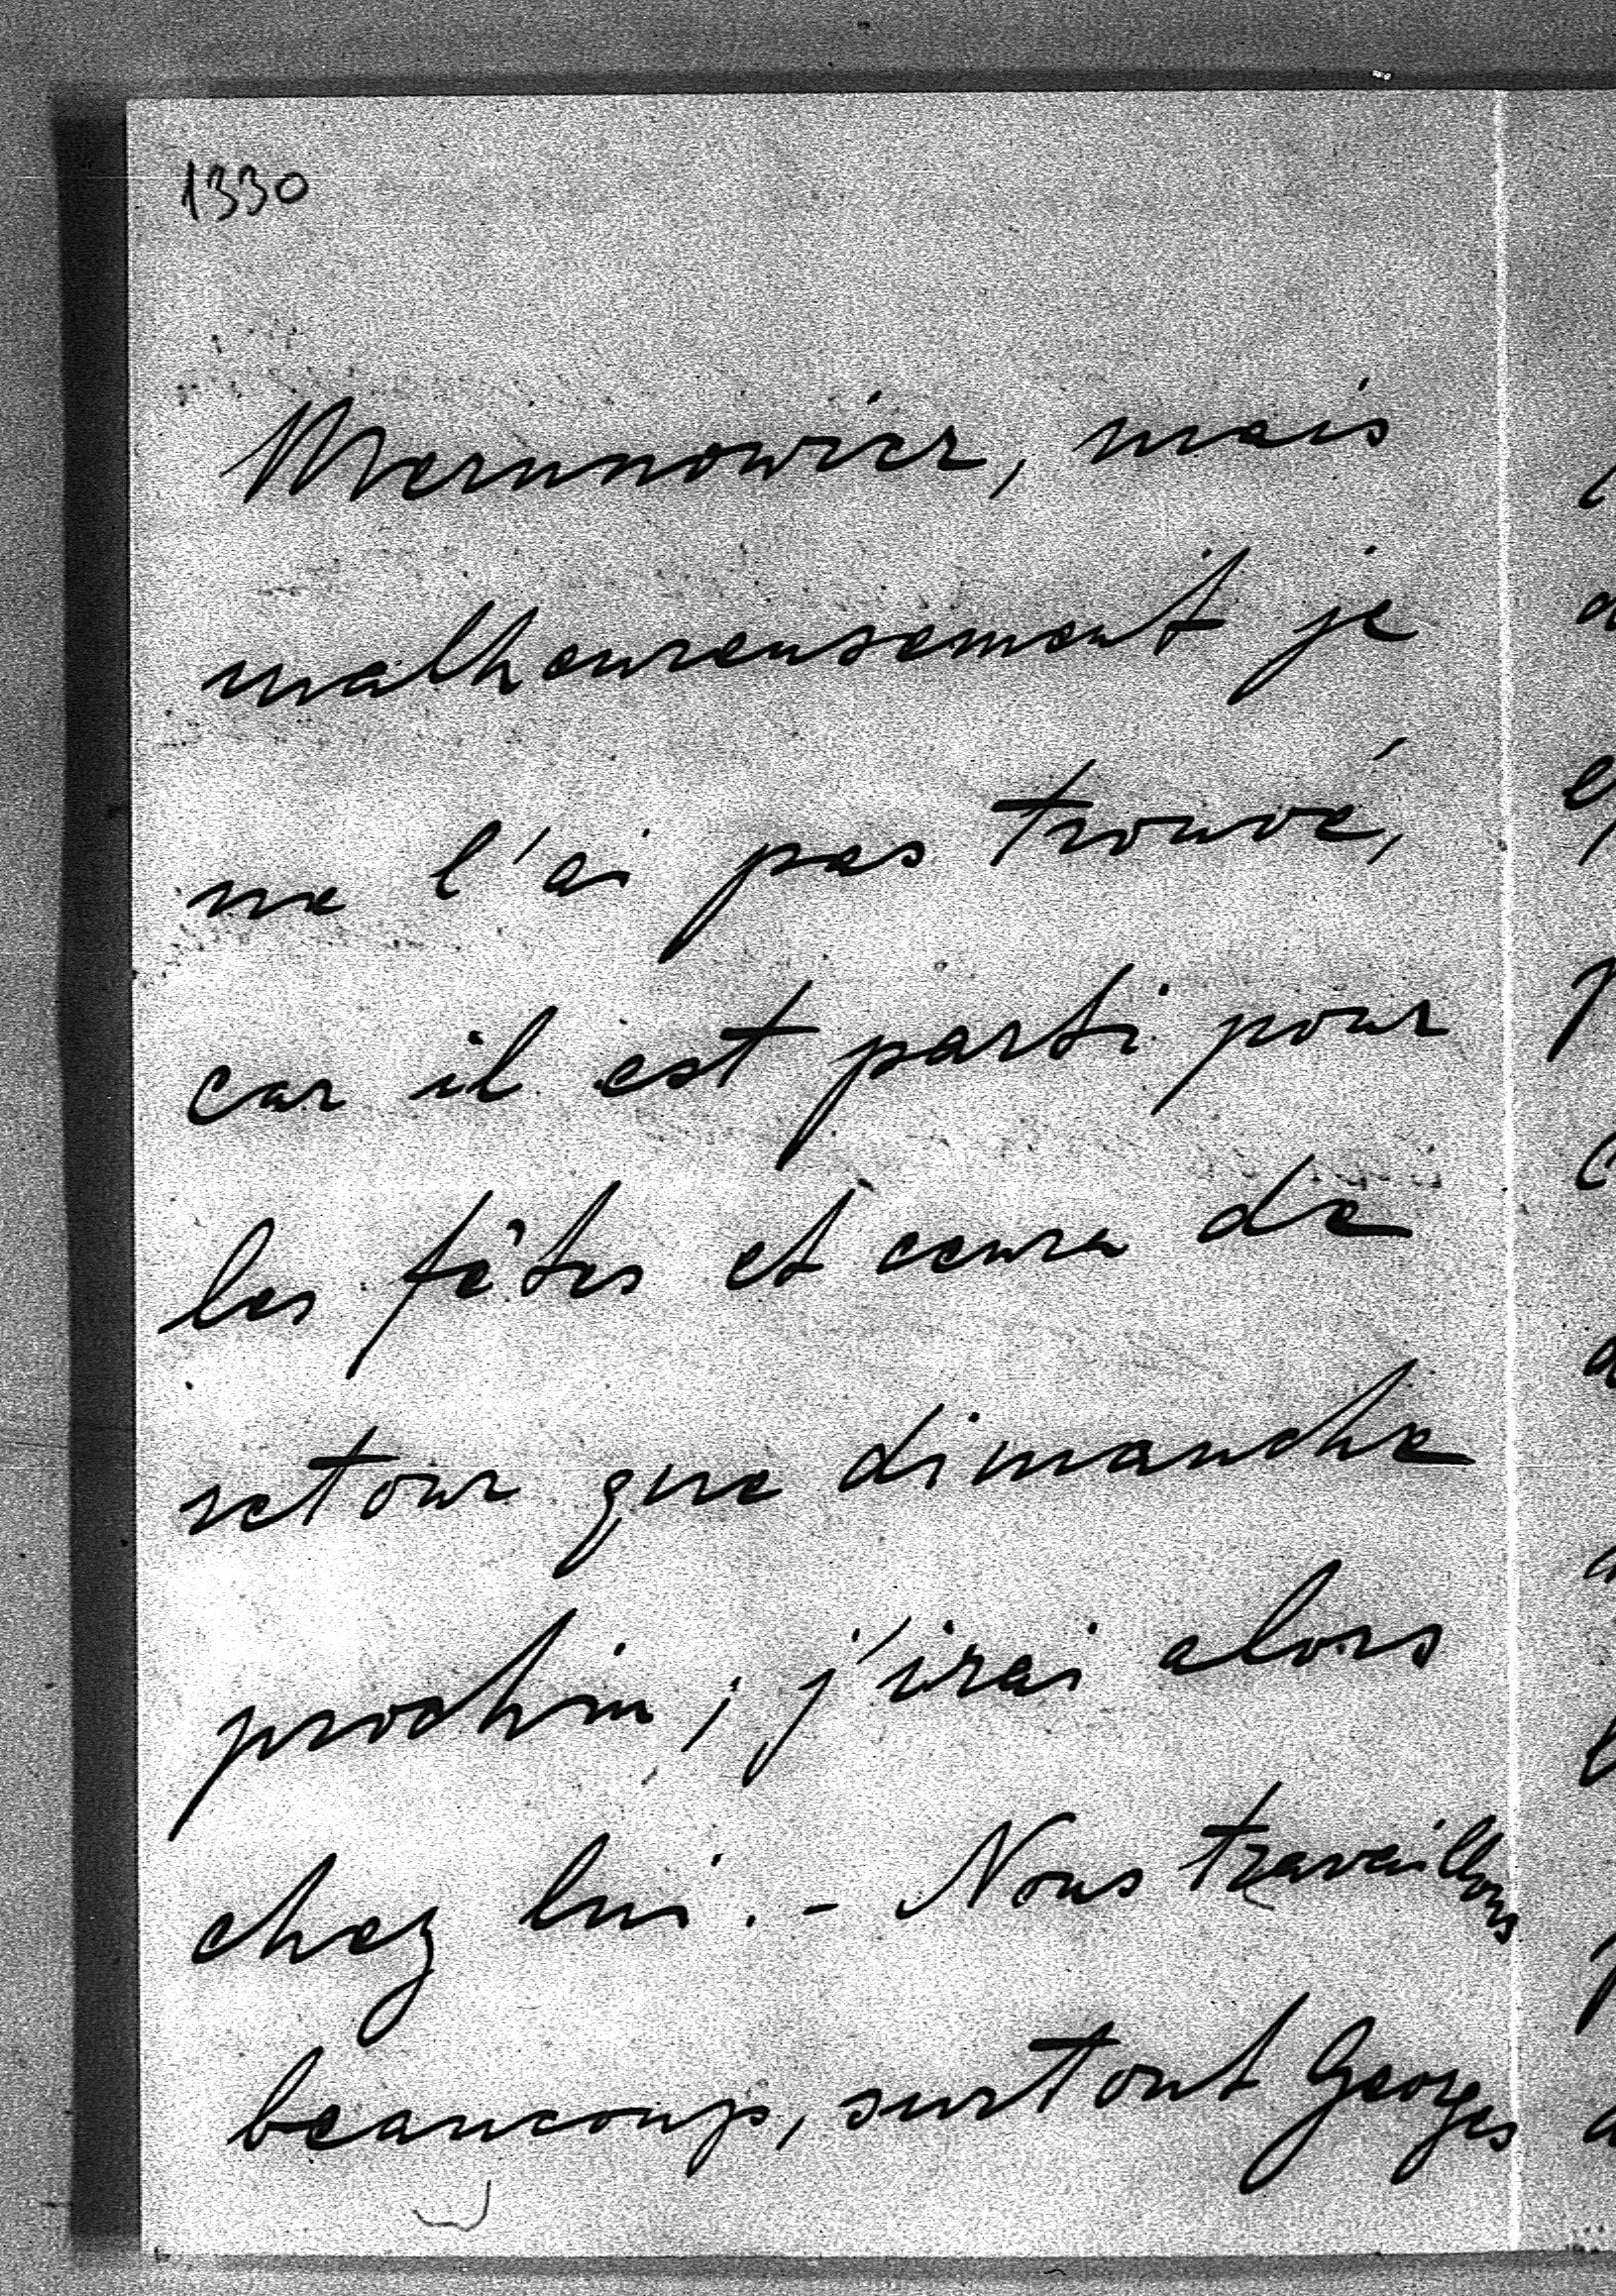 1330
Merunowicz, mais
malheureusement je
ne l'ai pas trouvé,
car il est parti pour
les fêtes et de
retour que dimanche
prochin ; j'irai alors
chez lui. - Nous travaillons
beaucoup, surtout Georges